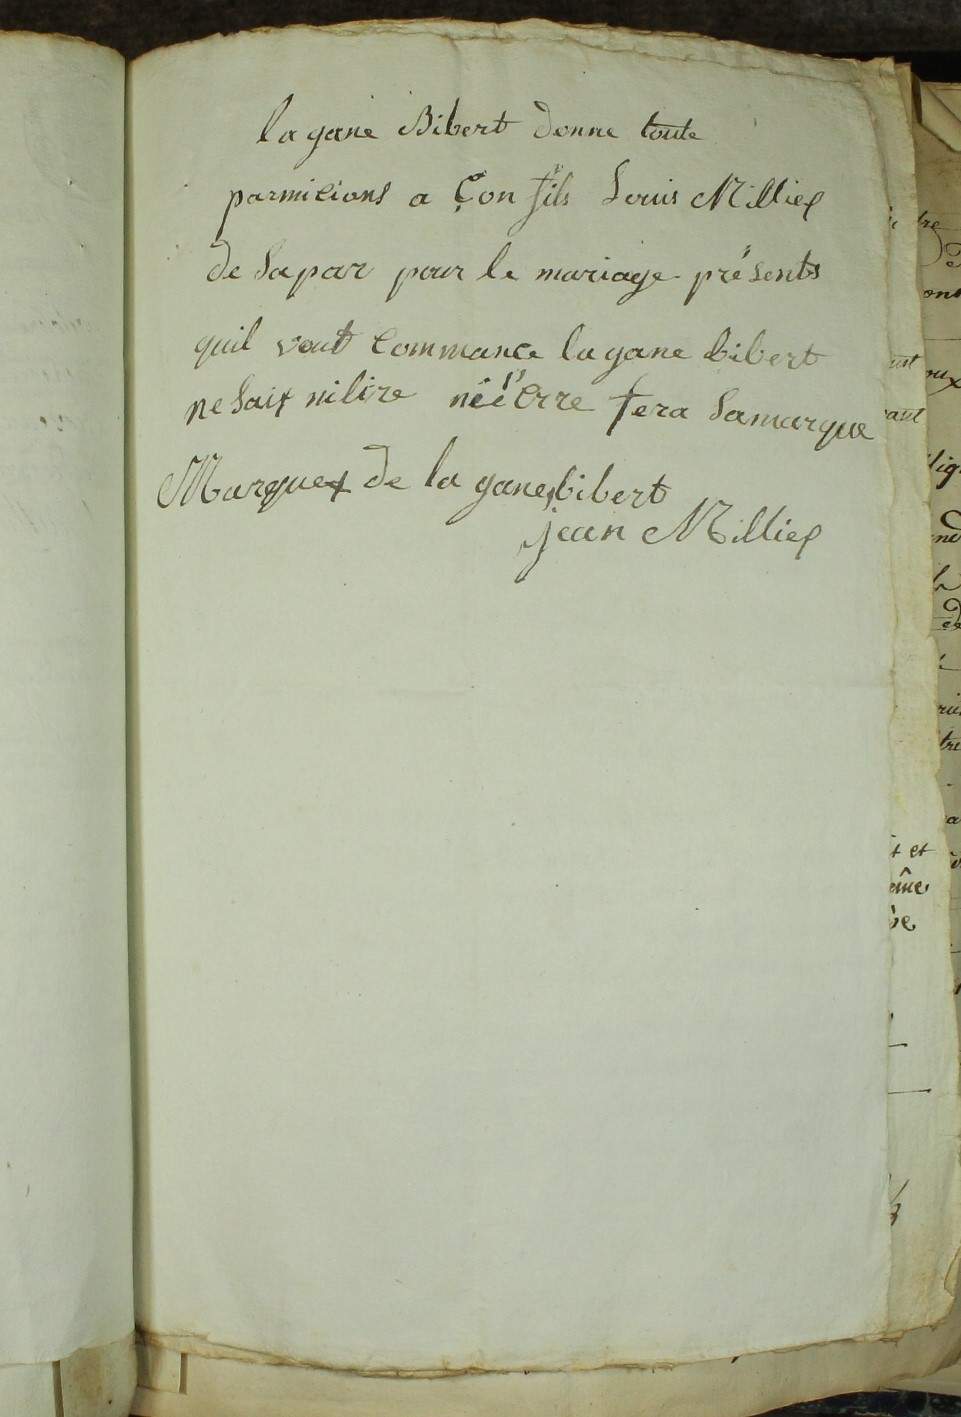 la gane Bibert donne toute
parmicions a Çon fils Louis Milliex
de Sapar pour le mariage présents
quil veut Commance la gane bibert
ne Sait ni lire ni éCrre fera Samarque
Marque x de la gane bibert
jean Milliex